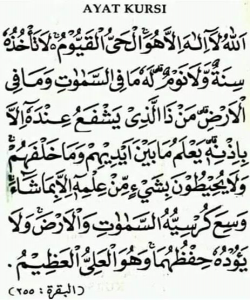 AYAT KURSI
اَللهُ لَآ اِلٰهَ اِلَّا هُوَ الْحَيُّ الْقَيُّوْمُ ۚ لَا تَأْخُذُهٗ
سِنَةٌ وَّلَا نَوْمٌ ۗ لَهٗ مَا فِى السَّمٰوٰتِ وَمَا فِى
الْاَرْضِ ۗ مَنْ ذَا الَّذِىْ يَشْفَعُ عِنْدَهٗٓ اِلَّا
بِاِذْنِهٖ ۗ يَعْلَمُ مَا بَيْنَ اَيْدِيْهِمْ وَمَا خَلْفَهُمْ ۚ
وَلَا يُحِيْطُوْنَ بِشَيْءٍ مِّنْ عِلْمِهٖٓ اِلَّا بِمَا شَآءَ ۚ
وَسِعَ كُرْسِيُّهُ السَّمٰوٰتِ وَالْاَرْضَ ۚ وَلَا
يَؤُدُهٗ حِفْظُهُمَا ۚ وَهُوَ الْعَلِيُّ الْعَظِيْمُ .
(البقرة : ٢٥٥)